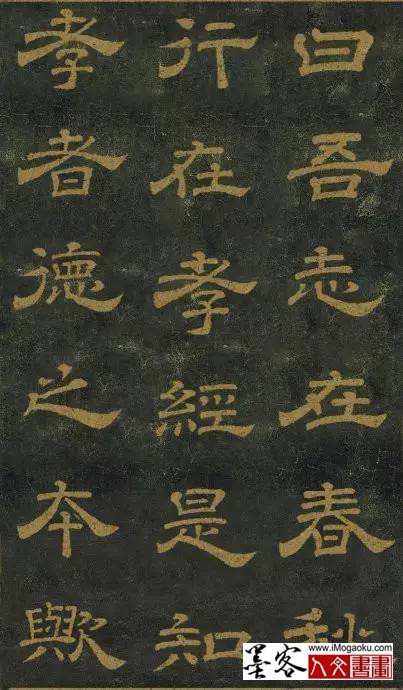 曰吾志在春秋
行在孝經是知
孝者德之本歟
墨客
www.iMogaoku.com
人文書畫